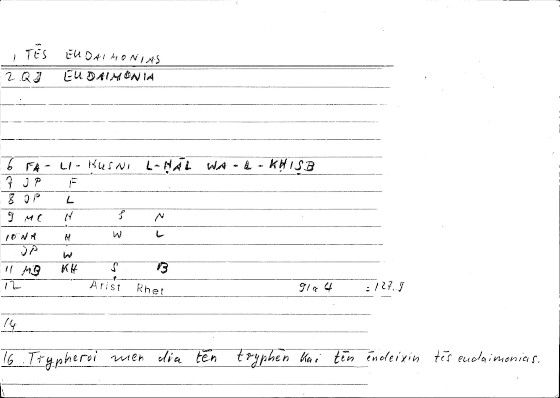 1 TĒS EUDAIMONIAS
2 QJ EUDAIMONIA
6 FA - LI - ḤUSNI L-ḤĀL WA - L - KHIṢB
7 JP F
8 JP L
9 MC Ḥ S N
10 NA Ḥ W L
JP W
11 MB KH Ṣ B
12 Arist Rhet 91a 4 = 127.9
14
16 Trypheroi men dia tēn tryphēn kai tēn endeixin tēs eudaimonias.